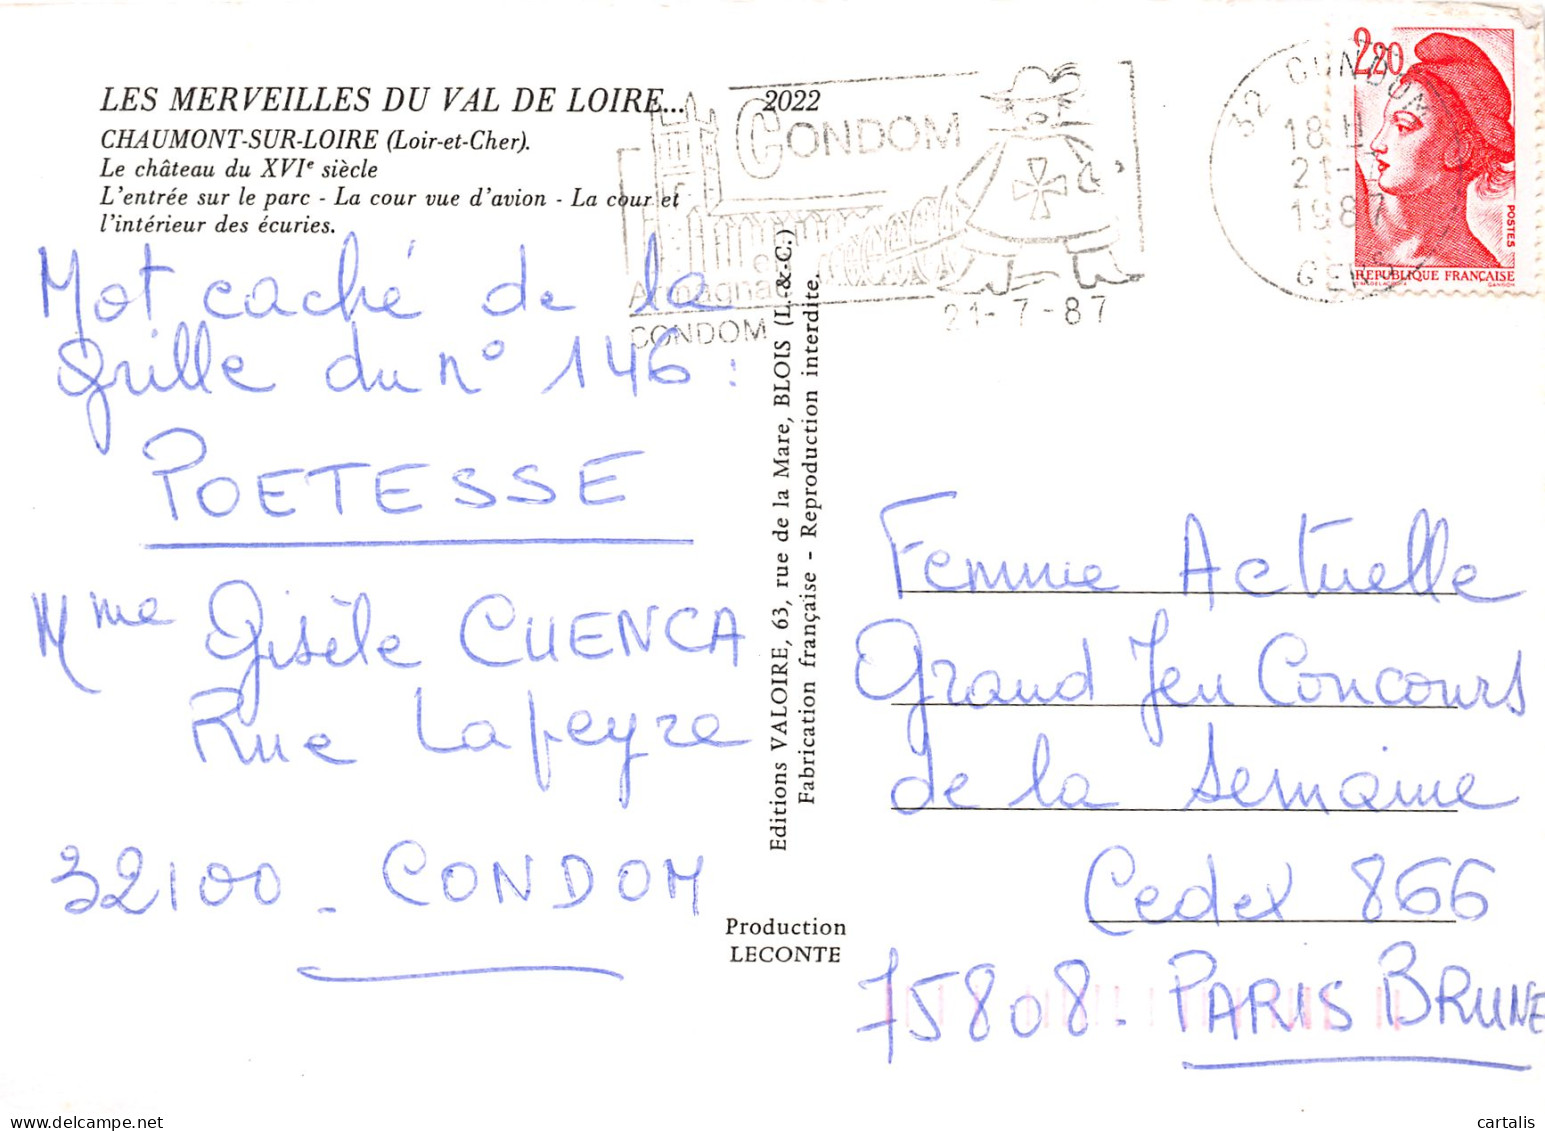 LES MERVEILLES DU VAL DE LOIRE...
2022
CHAUMONT-SUR-LOIRE (Loir-et-Cher).
Le château du XVIe siècle
L'entrée sur le parc - La cour vue d'avion - La cour et
l'intérieur des écuries.
Mot caché de la
grille du n° 146 :
POETESSE
Mme Gisèle CUENCA
Rue Lafeyre
32100 - CONDOM
CONDOM
Armagnac
CONDOM
21-7-87
32 CONDOM
18 H
21-
1987
GERS
2,20
POSTES
REPUBLIQUE FRANÇAISE
GANDON
Editions VALOIRE, 63, rue de la Mare, BLOIS (L.-&-C.)
Fabrication française - Reproduction interdite.
Production
LECONTE
Femme Actuelle
Grand Jeu Concours
de la semaine
Cedex 866
75808 - PARIS BRUNE
delcampe.net
cartalis